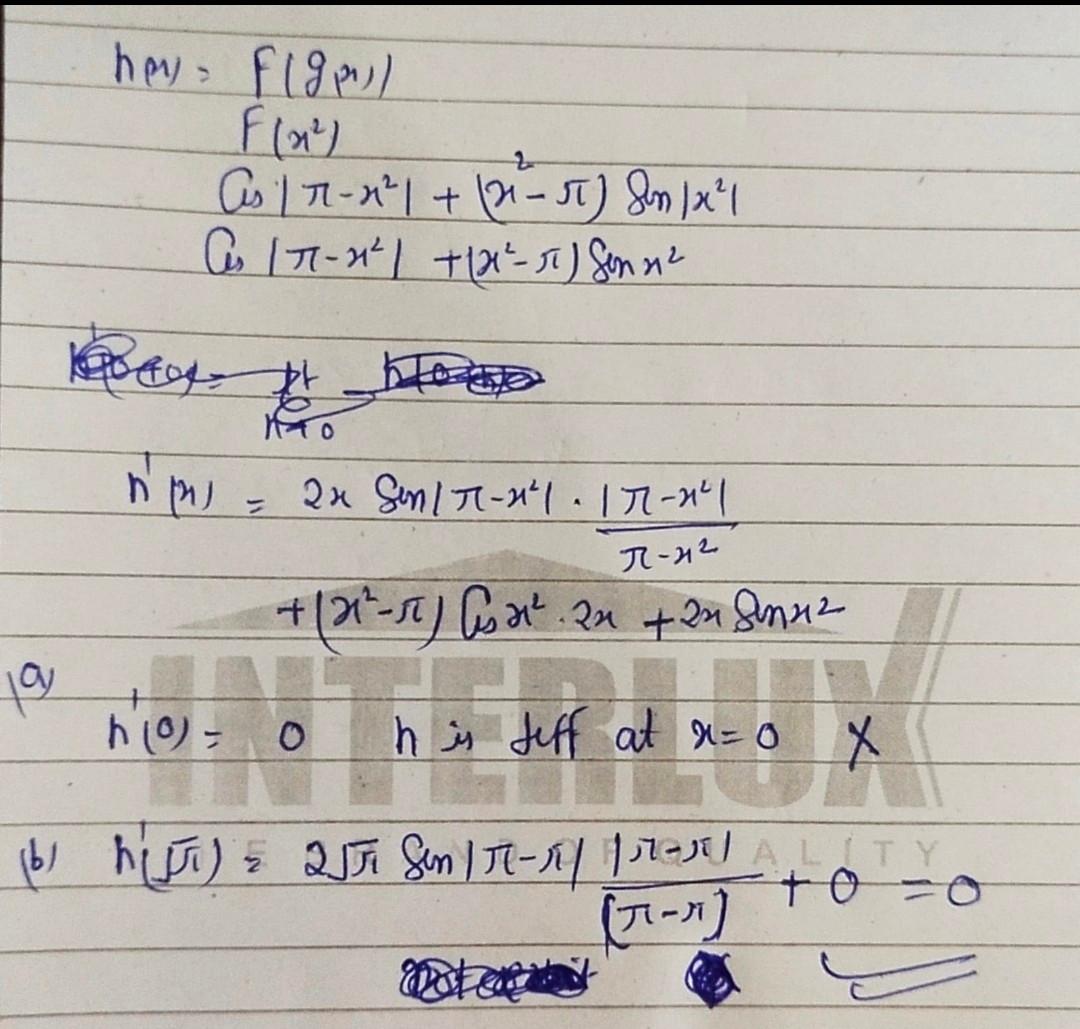 h(x) = F(g(x))
F(x²)
Cos |π-x²| + (x²-π) Sin |x²|
Cos |π-x²| + (x²-π) Sin x²
h→0
h'(x) = 2x Sin |π-x²| · |π-x²| / π-x²
+ (x²-π) Cos x² · 2x + 2x Sin x²
(a)
h'(0) = 0 h is diff at x=0 X
(b) h'(√π) = 2√π Sin |π-π| |π-π| / (π-π) + 0 = 0
INTERLUX
OF QUALITY